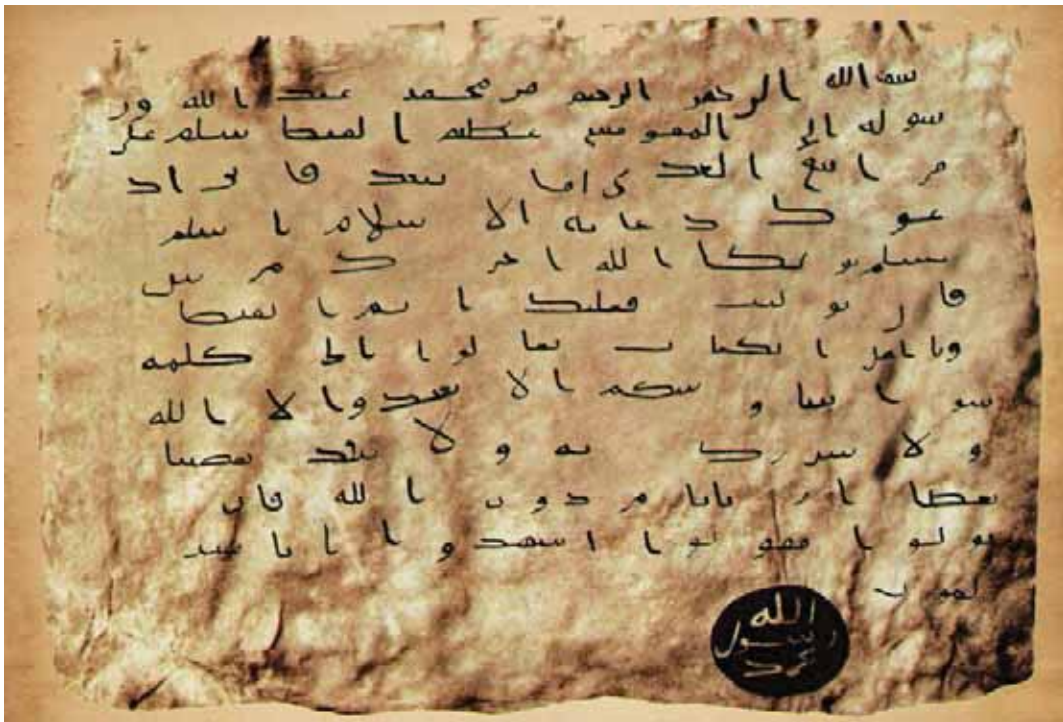 بسم الله الرحمن الرحيم من محمد عبد الله ور
سوله الى المقوقس عظيم القبط سلم على
من اتبع الهدى اما بعد فانى اد
عوك بدعاية الاسلام اسلم
تسلم يوتك الله اجرك مرتين
فان توليت فعليك اثم القبط
ويا اهل الكتاب تعالوا الى كلمة
سوا بيننا و بينكم الا نعبد الا الله
ولا نشرك به و لا يتخذ بعضنا
بعضا اربابا من دون الله فان
تولوا فقولوا اشهدوا بانا مسـ
لمون
الله
رسول
محمد